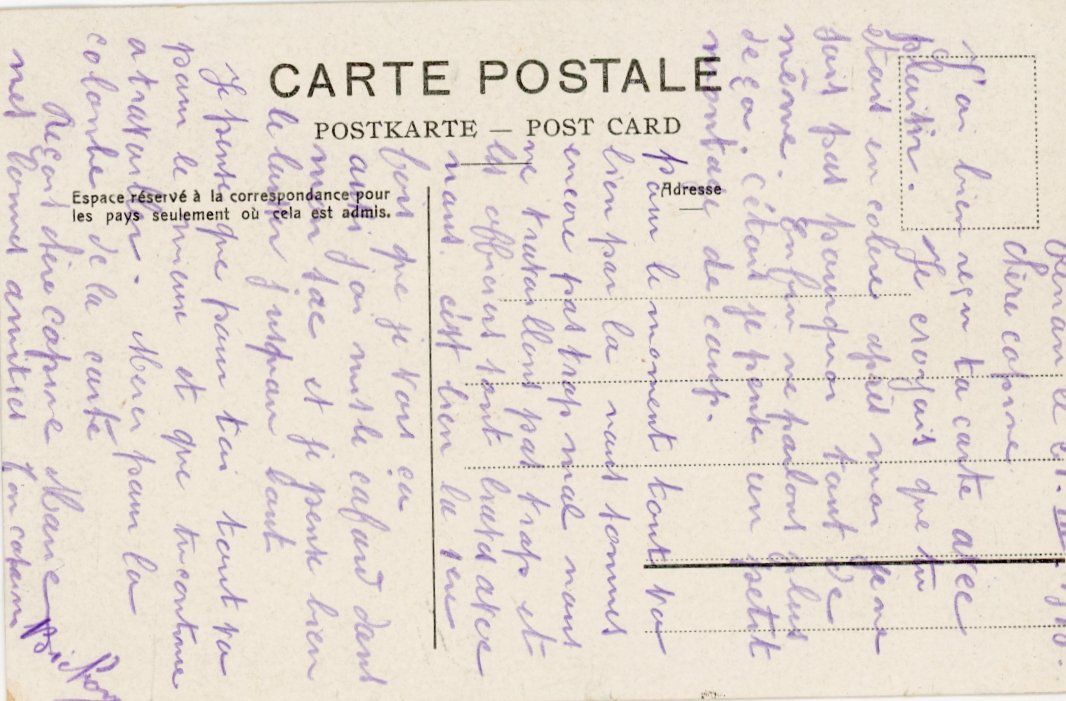 CARTE POSTALE
POSTKARTE — POST CARD
Espace réservé à la correspondance pour
les pays seulement où cela est admis.
Adresse
le
chère copine
J'ai bien reçu ta carte avec
plaisir. Je croyais que tu
était en colère après moi je ne
sais pas pourquoi tout de
même. Enfin ne parlons plus
de ça. c'était je pense un petit
de cafard.
pour le moment tout va
bien par la nous sommes
encore pas trop mal nous
ne travaillons pas trop et
les officiers sont avec
nous. c'est bien la
fois que je vois ça
aussi j'ai mis le cafard dans
mon sac et je pense bien
le laisser jusqu'au bout
Je pense que pour toi tout va
pour le mieux et que tu continue
a travailler. Merci pour la
colombe de la carte
Reçois chère copine Marie
mes bonnes amitiés Ton copain